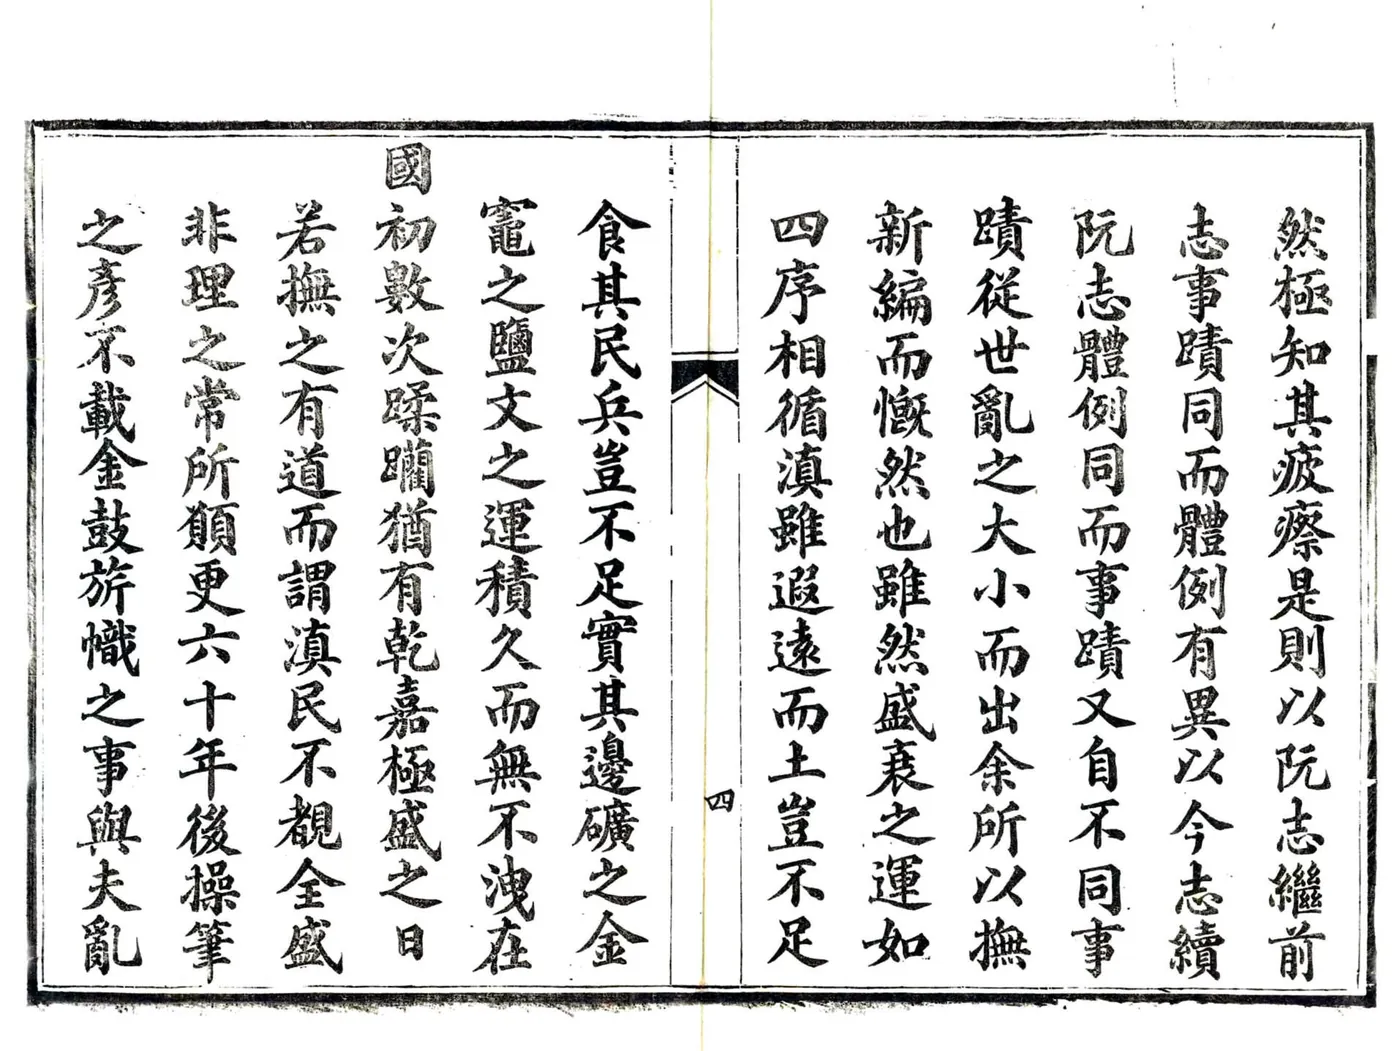 然極知其疲瘵是則以阮志繼前
志事蹟同而體例有異以今志續
阮志體例同而事蹟又自不同事
蹟從世亂之大小而出余所以撫
新編而慨然也雖然盛衰之運如
四序相循滇雖遐遠而土豈不足
四
食其民兵豈不足實其邊礦之金
竈之鹽文之運積久而無不洩在
國初數次蹂躪猶有乾嘉極盛之日
若撫之有道而謂滇民不覩全盛
非理之常所願更六十年後操筆
之彥不載金鼓旂幟之事與夫亂